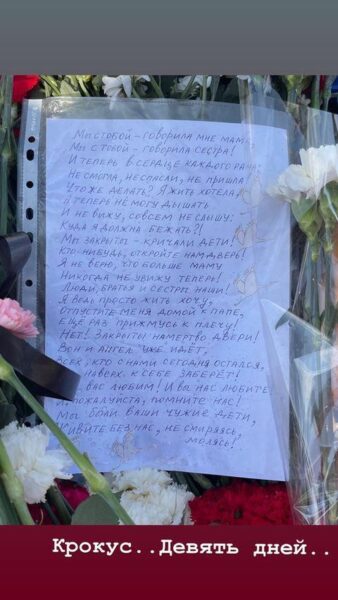 Мы с тобой – говорила мне мама,
Мы с тобой – говорила сестра!
И теперь в сердце каждого рана:
Не смогла, не спасли, не пришла
Что же делать? Я жить хотела,
А теперь не могу дышать
И не вижу, совсем не слышу:
Куда я должна бежать?!
Мы закрыты – кричали дети!
Кто-нибудь, откройте нам дверь!
Я не верю, что больше маму
Никогда не увижу теперь!
Люди, братья и сестры наши!
Я ведь просто жить хочу,
Отпустите меня домой к папе,
Ещё раз прижмусь к плечу!
Нет! Закрыты намертво двери!
Вон и Ангел уже идёт,
Всех, кто с нами сегодня остался,
наверх к себе заберёт!
вас любим! И вы нас любите
пожалуйста, помните нас!
Мы были ваши чужие дети,
Живите без нас, не смиряясь,
молясь!
Крокус..Девять дней..